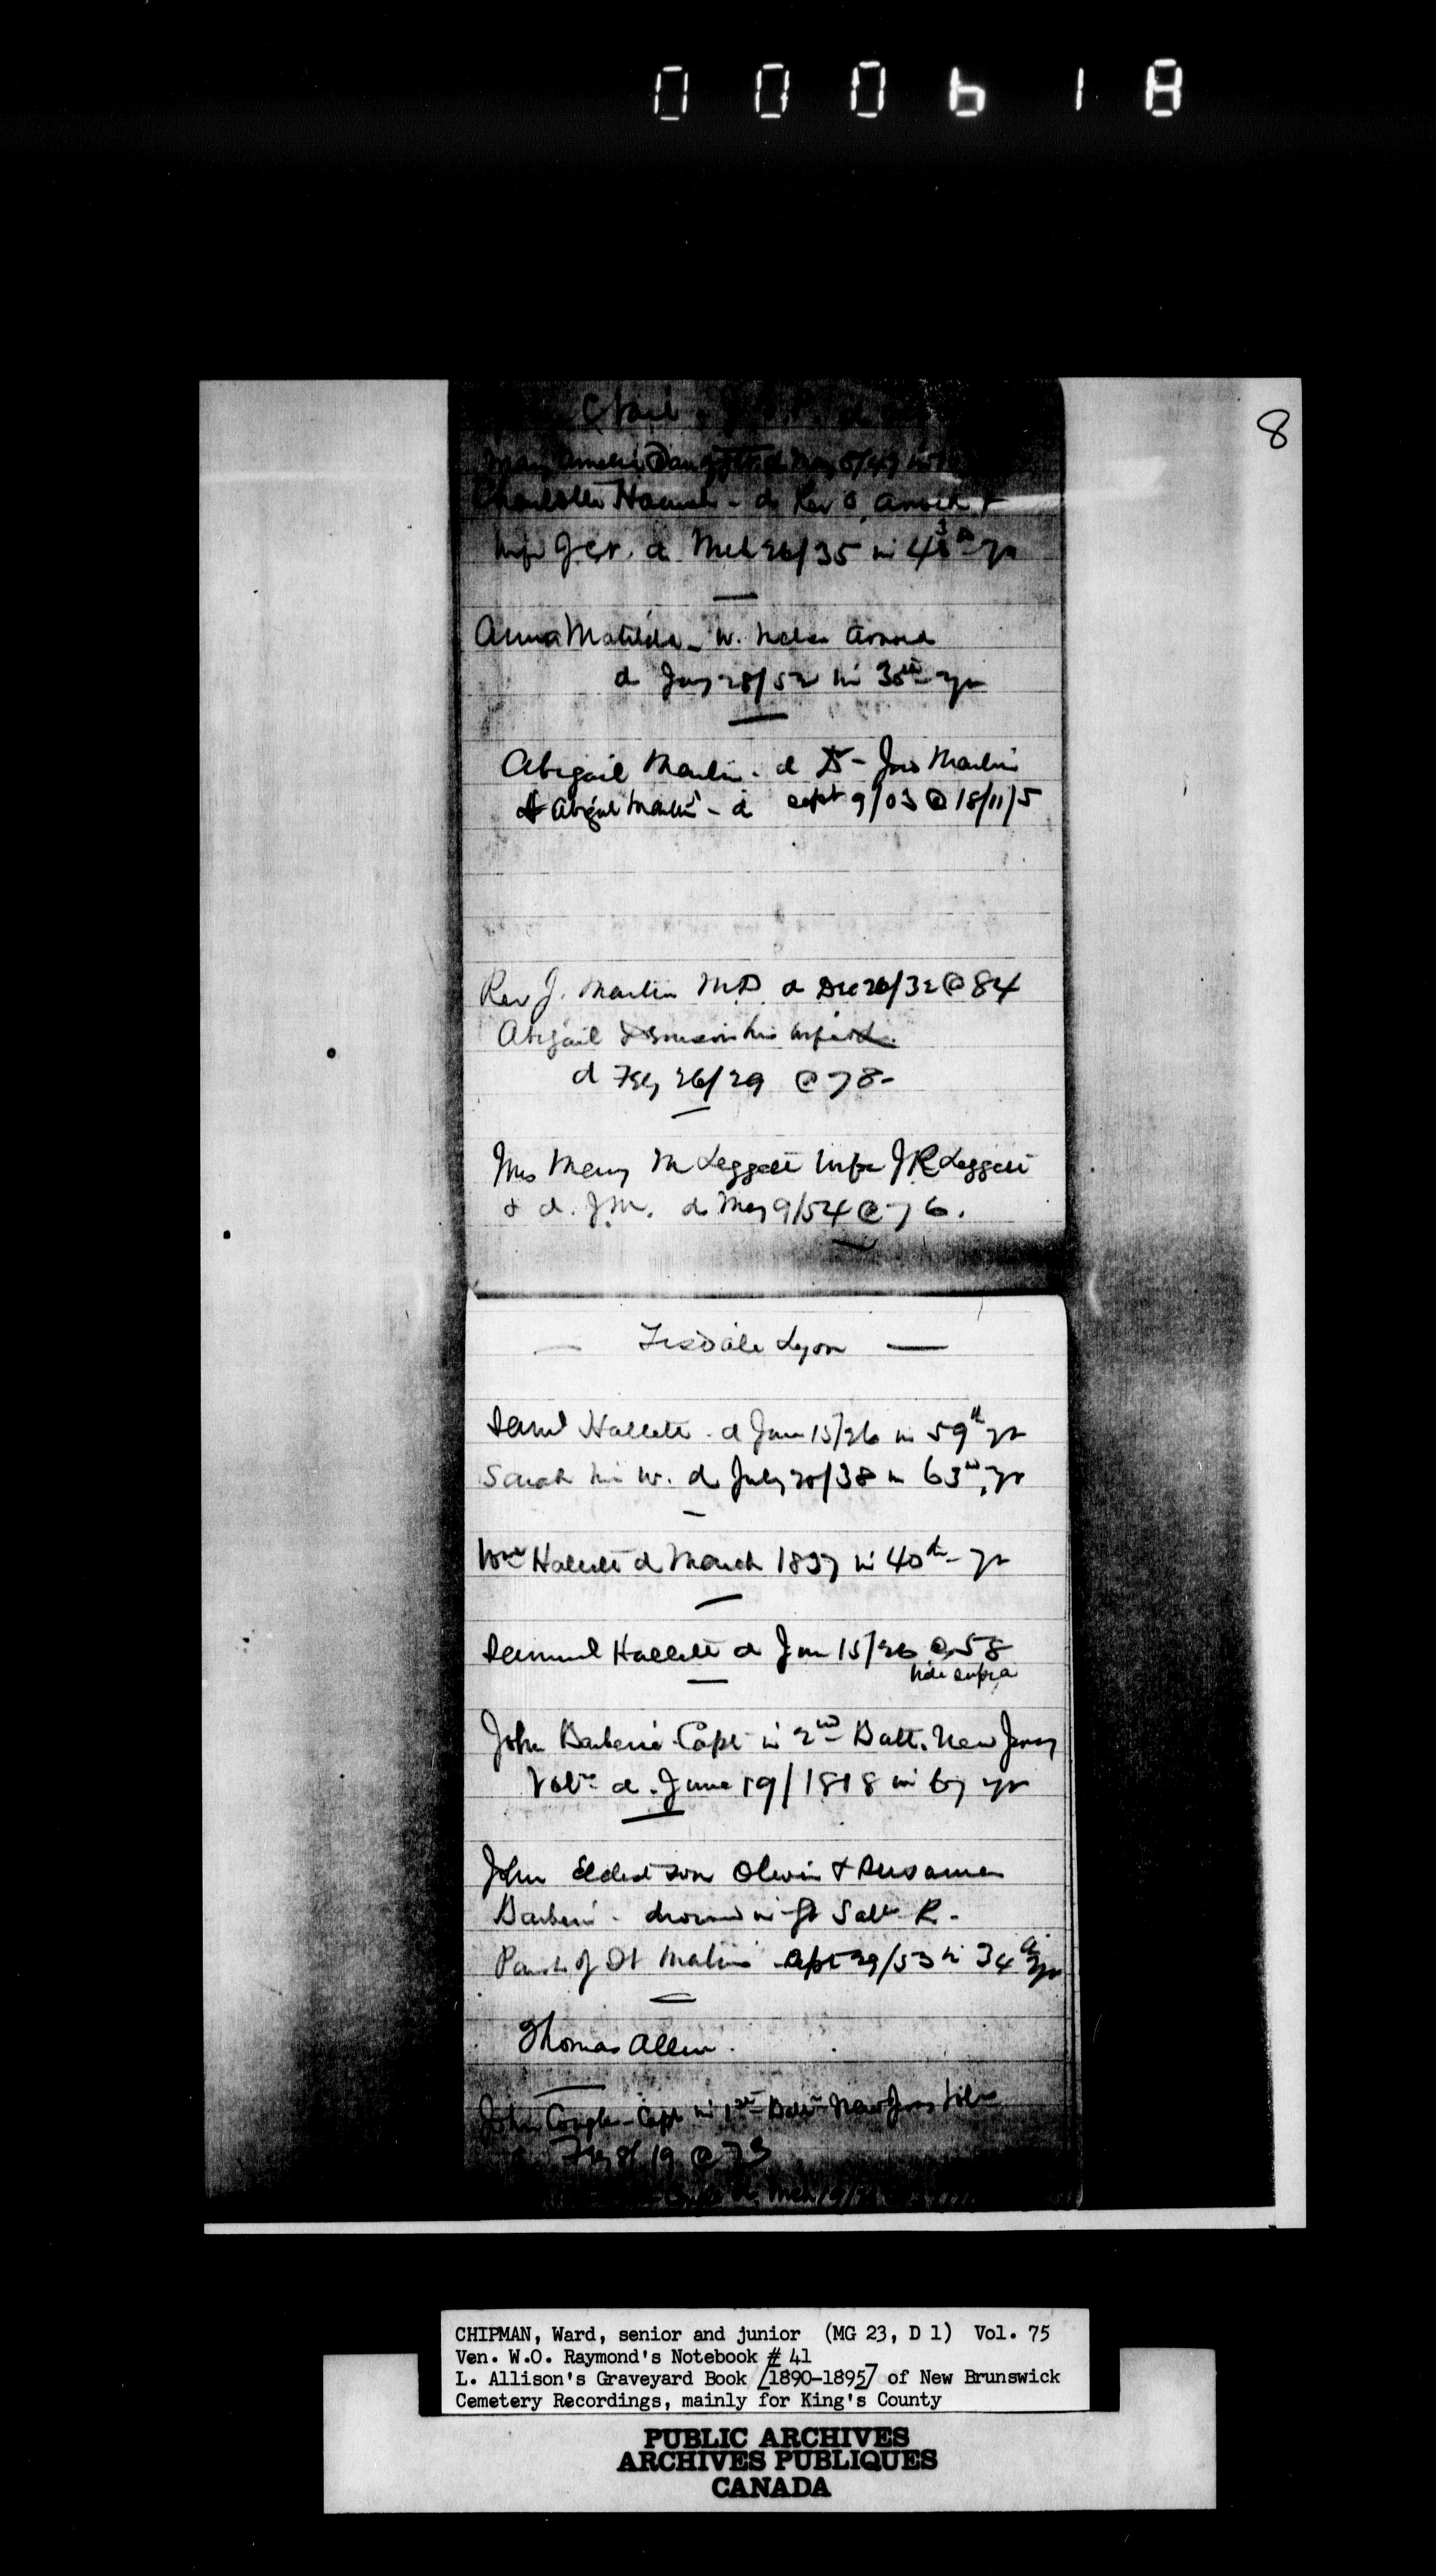 000618
8
d
Mary Amelia Dau d May 8/49
Charlotte Hannah - d Rev O. Arnold &
wife d Mch 26/35 in 43 yr
Anna Matilda - w. Nelson Arnold
d Jany 28/52 in 30th yr
Abigail Martin - d Dr - Jno Martin
& Abigail Martin - d Sept 9/03 @ 18/11/5
Rev J. Martin M.D. d Dec 26/32 @ 84
Abigail his wife
d Feby 26/29 @ 78 -
Mrs Mary M Leggett wife J R Leggett
& d. J.M. d May 9/54 @ 76.
— Tisdale Lyon —
Saml Hallett - d Jan 15/26 in 59th yr
Sarah his w. d July 20/38 in 63rd yr
Wm Hallett d March 1837 in 40th - yr
Samuel Hallett d Jan 15/26 @ 58
vide supra
John Barberie Capt in 2nd Batt. New Jersey
Vols d. June 19/1818 in 67 yr
John Eldest son Oliver & Susanna
Barberie - drowned in Gt Salm R -
Parish of St Martins Sept 29/53 in 34th yr
Thomas Allen.
John Cougle - Capt in 1st Batt New Jersey Vols
Feby 8/19 @ 73
d Mch 19/
CHIPMAN, Ward, senior and junior (MG 23, D 1) Vol. 75
Ven. W.O. Raymond's Notebook # 41
L. Allison's Graveyard Book [1890-1895] of New Brunswick
Cemetery Recordings, mainly for King's County
PUBLIC ARCHIVES
ARCHIVES PUBLIQUES
CANADA